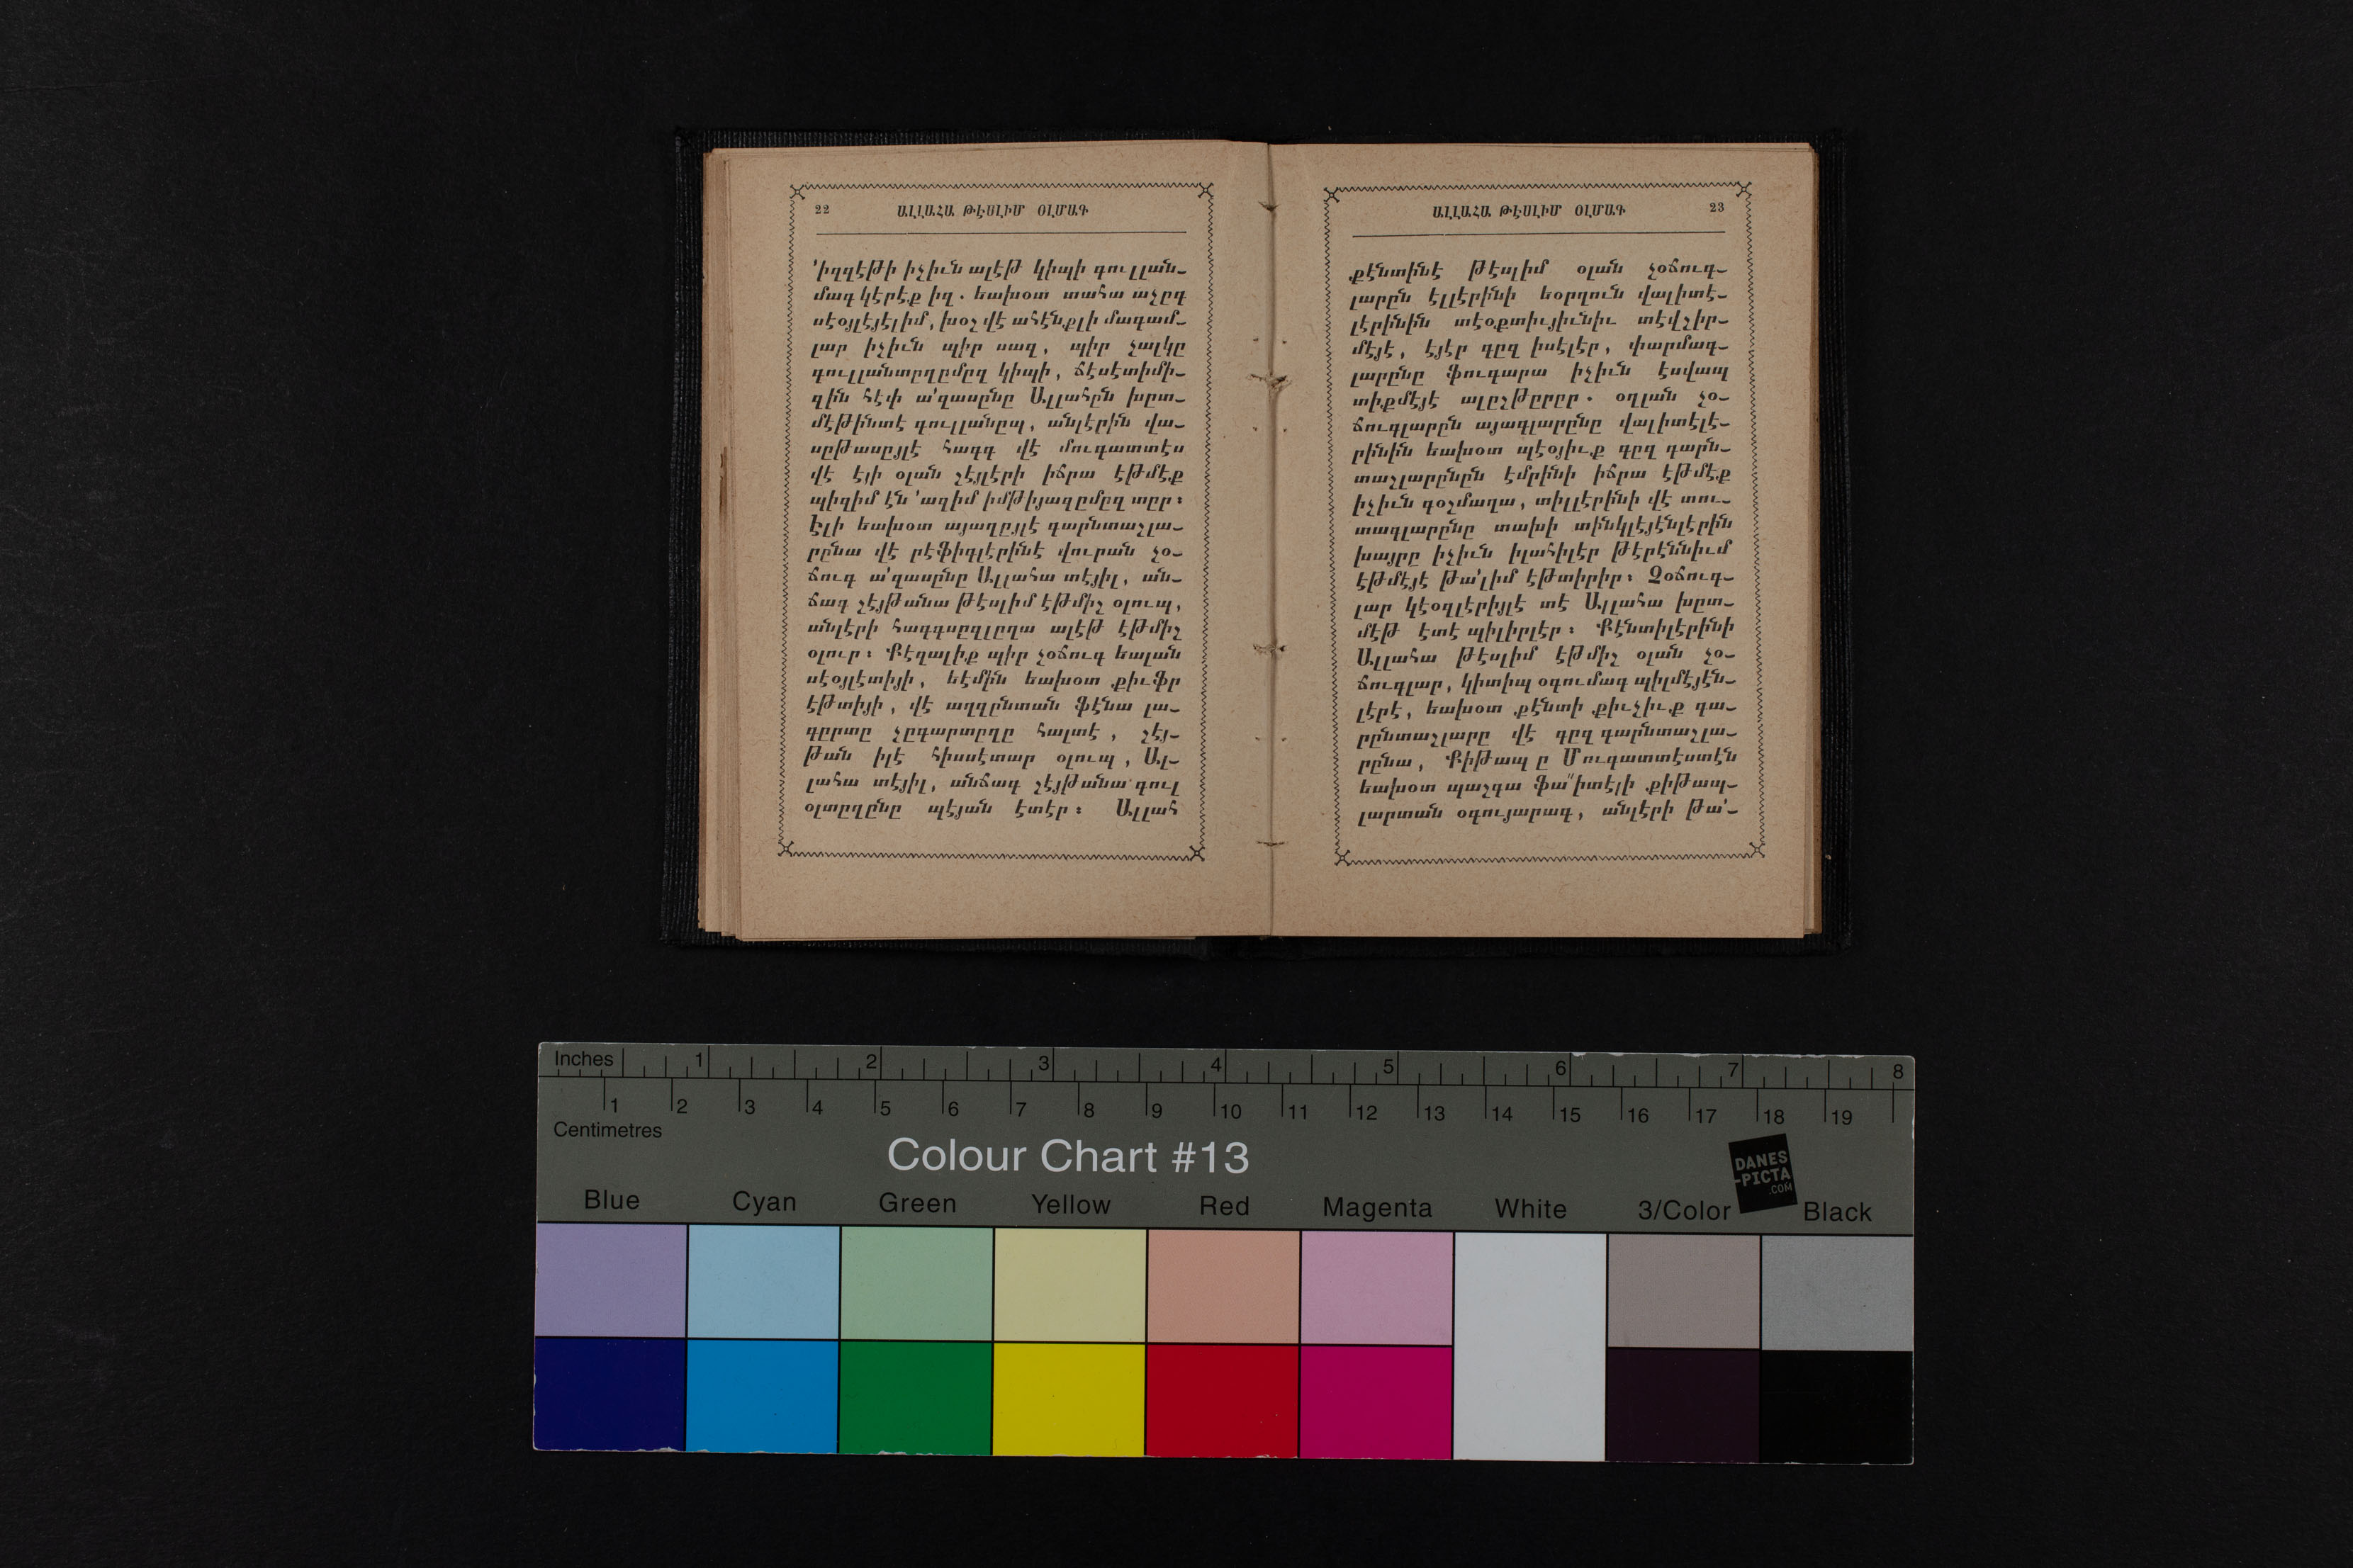 22 ԱԼԼԱՀԱ ԹԷՍԼԻՄ ՕԼՄԱԳ
՚իզզէթի իչիւն ալէթ կիպի գուլլան֊
մագ կէրէք իզ . եախօտ տահա աչըգ
սէօյլէյէլիմ, խօշ վէ ահէնքլի մագամ֊
լար իչիւն պիր սազ , պիր չալկը
գուլլանտըղըմըզ կիպի , ճէսէտիմի֊
զին հէփ ա՚զասընը Ալլահըն խըտ֊
մէթինտէ գուլլանըպ , անլէրին վա֊
սըթասըյլէ հագգ վէ մուգատտէս
վէ էյի օլան շէյլէրի իճրա էթմէք
պիզիմ էն ՚ազիմ իմթիյազըմըզ տըր ։
Էլի եախօտ այաղըյլէ գարնտաշլա֊
րընա վէ րէֆիգլէրինէ վուրան չօ֊
ճուգ ա՚զասընը Ալլահա տէյիլ , ան֊
ճագ շէյթանա թէսլիմ էթմիշ օլուպ ,
անլէրի հագգսըզլըղա ալէթ էթմիշ
օլուր ։ Քէզալիք պիր չօճուգ եալան
սէօյլէտիյի , եէմին եախօտ քիւֆր
էթտիյի , վէ աղզընտան ֆէնա լա֊
գըրտը չըգարտըղը հալտէ , շէյ֊
թան իլէ հիսսէտար օլուպ , Ալ֊
լահա տէյիլ , անճագ շէյթանա գուլ
օլտըղընը պէյան էտէր ։ Ալլահ
ԱԼԼԱՀԱ ԹԷՍԼԻՄ ՕԼՄԱԳ 23
քէնտինէ թէսլիմ օլան չօճուգ֊
լարըն էլլէրինի եօրղուն վալիտէ֊
լէրինին տէօքտիւյիւնիւ տէվշիր֊
մէյէ , էյէր գըզ իսէլէր , փարմագ֊
լարընը ֆուգարա իչիւն էսվապ
տիքմէյէ ալըշթըրըր . օղլան չօ֊
ճուգլարըն այագլարընը վալիտէլէ֊
րինին եախօտ պէօյիւք գըզ գարն֊
տաշլարընըն էմրինի իճրա էթմէք
իչիւն գօշմաղա , տիլլէրինի վէ տու֊
տագլարընը տախի տինկլէյէնլէրին
խայրը իչիւն իլահիլէր թէրէննիւմ
էթմէյէ թա՚լիմ էթտիրիր ։ Չօճուգ֊
լար կէօզլէրիյլէ տէ Ալլահա խըտ֊
մէթ էտէ պիլիրլէր ։ Քէնտիլէրինի
Ալլահա թէսլիմ էթմիշ օլան չօ֊
ճուգլար , կիտիպ օգումագ պիլմէյէն֊
լէրէ , եախօտ քէնտի քիւչիւք գա֊
րընտաշլարը վէ գըզ գարնտաշլա֊
րընա , Քիթապ ը Մուգատտէստէն
եախօտ պաշգա ֆա՚՚իտէլի քիթապ֊
լարտան օգույարագ , անլէրի թա՚֊
Inches 1 2 3 4 5 6 7 8
1 2 3 4 5 6 7 8 9 10 11 12 13 14 15 16 17 18 19
Centimetres
Colour Chart #13
DANES
-PICTA
.COM
Blue Cyan Green Yellow Red Magenta White 3/Color Black